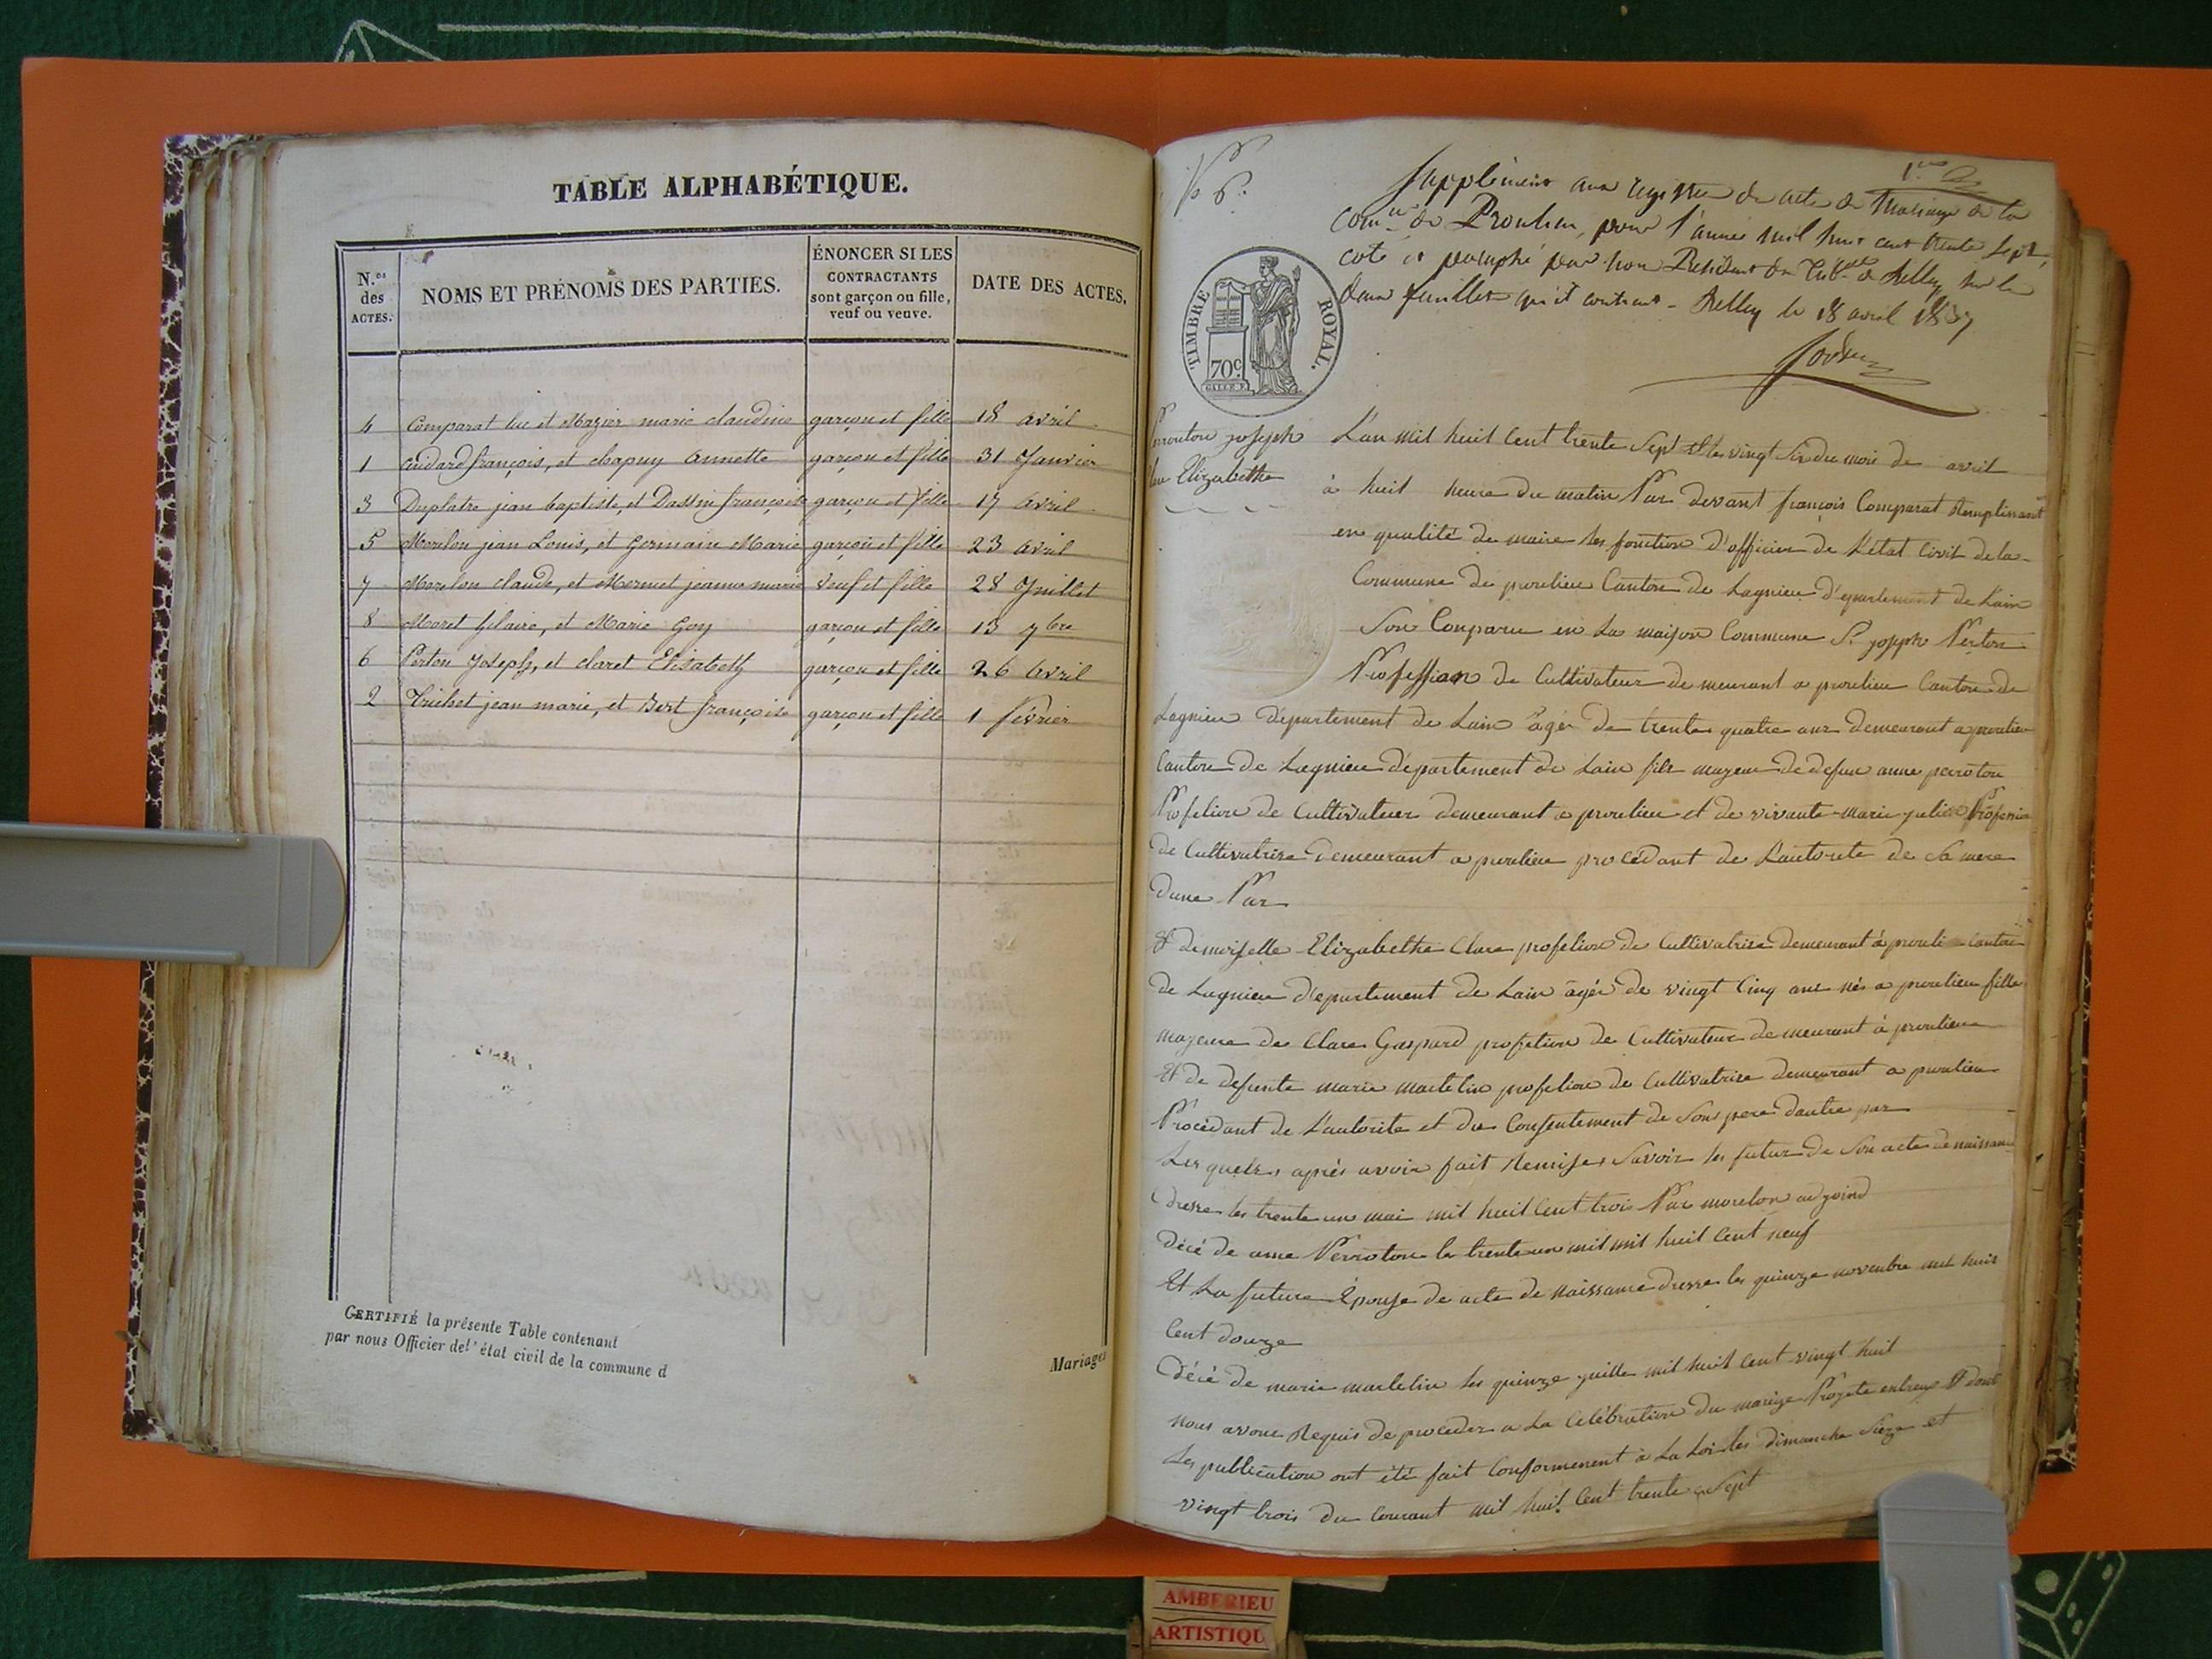 TABLE ALPHABÉTIQUE.
N.os des ACTES.
NOMS ET PRÉNOMS DES PARTIES.
ÉNONCER SI LES CONTRACTANTS sont garçon ou fille, veuf ou veuve.
DATE DES ACTES.
4 Comparat luc et Mazier marie claudine garçon et fille 18 avril
1 Cuidard françois, et chapuy annette garçon et fille 31 Janvier
3 Duplatre jean baptiste, et Dassin françoise garçon et fille 17 avril
5 Morelon jean Louis, et Germain Marie garçon et fille 23 avril
7 Morelon claude, et Mermet jeanne marie Veuf et fille 28 Juillet
8 Moret hilaire, et Marie Goy garçon et fille 13 7bre
6 Perton Joseph, et claret Elisabeth garçon et fille 26 avril
2 Trichet jean marie, et Bert françoise garçon et fille 1 février
CERTIFIÉ la présente Table contenant
par nous Officier del' état civil de la commune d
Mariages
Supplément aux registre de acte de Mariage de la
Comne de Proulieu, pour l'année mil huit cent trente sept,
coté et paraphé par nous Président du de Belley sur les
deux feuillets qu'il contient - Belley le 18 avril 1837
TIMBRE ROYAL.
70c
joseph
Elizabethe
L'an mil huit Cent trente Sept et le vingt Six du mois de avril
à huit heure du matin Par devant françois Comparat Remplissant
en qualité de maire les fonction d'officier de L'état Civil de la
Commune de proulieu Canton de Lagnieu d'epartement de Lain
Son Comparu en La maison Commune Sr joseph Perton
Profession de Cultivateur demeurant a proulieu Canton de
Lagnieu département de Lain âgé de trente quatre ans demeurant a proulieu
Canton de Lagnieu département de Lain fils mageur de defun anne peroton
Profesion de Cultivateur demeurant a proulieu et de vivante marie Profession
de Cultivatrise demeurant a proulieu procédant de L'autorite de Sa mere
dune Par
Et demoiselle Elizabethe Clare profesion de Cultivatrise demeurant à prouli Canton
de Lagnieu d'epartement de Lain âgée de vingt Cinq ans née a proulieu fille
mageure de Clare Gaspard profesion de Cultivateur demeurant à proulieu
Et de defunte marie martelin profesion de Cultivatrise demeurant a proulieu
Procédant de L'autorite et du Consentement de Son pere dautre par
Les quels, après avoir fait Remise, Savoir les futur de Son acte de naissance
dresse les trente un mai mil huit Cent trois Par morelon adjoind
décé de ame Perroton le trente un mil huit Cent neuf
Et La future Épouse de acte de naissance dresse les quinze novembre mil huit
Cent douze
décé de marie martelin les quinze juille mil huit Cent vingt huit
nous avons Requis de proceder a La Celébration du mariage Projete entreux Et dont
Les publication ont été fait Conformement à La Loi les dimanche Sieze et
vingt trois du Courant mil huit Cent trente Sept
AMBERIEU
ARTISTIQU